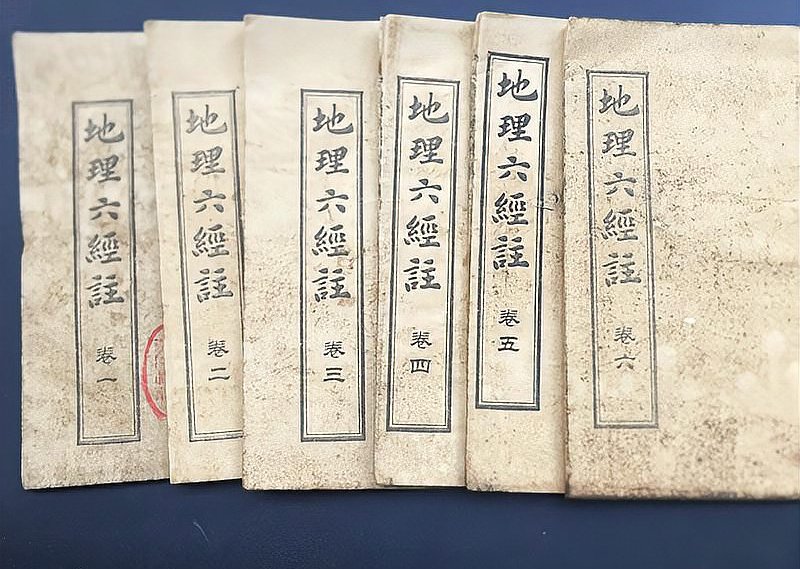 地理六經註 卷一
地理六經註 卷二
地理六經註 卷三
地理六經註 卷四
地理六經註 卷五
地理六經註 卷六